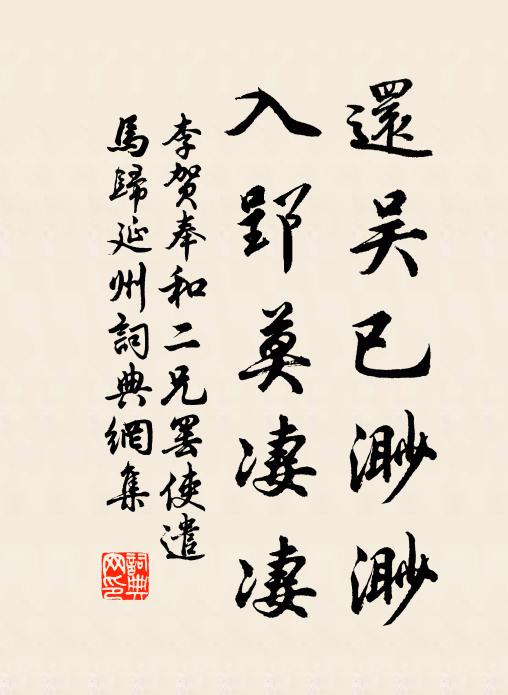 還吴已渺渺
入郢莫凄凄
李賀奉和二兄罷使遣
馬歸延州詞典網集
詞典
网印